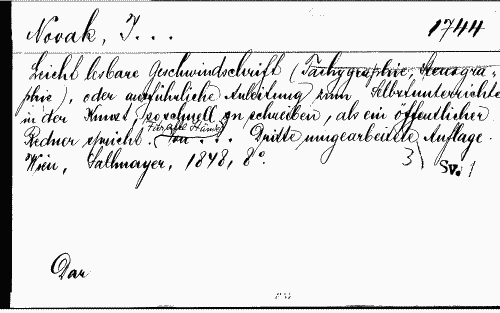 Novak, J... 1744
Leicht lesbare Geschwindschrift (Tachygraphie, Stenogra-
phie), oder ausführliche Anleitung zum Selbstunterrichte
in der Kunst, so schnell zu schreiben, als ein öffentlicher
Für alle Stände
Redner spricht. ... Dritte umgearbeitete Auflage.
Wien, Sallmayer, 1848, 8°. Sv. 1
Dar